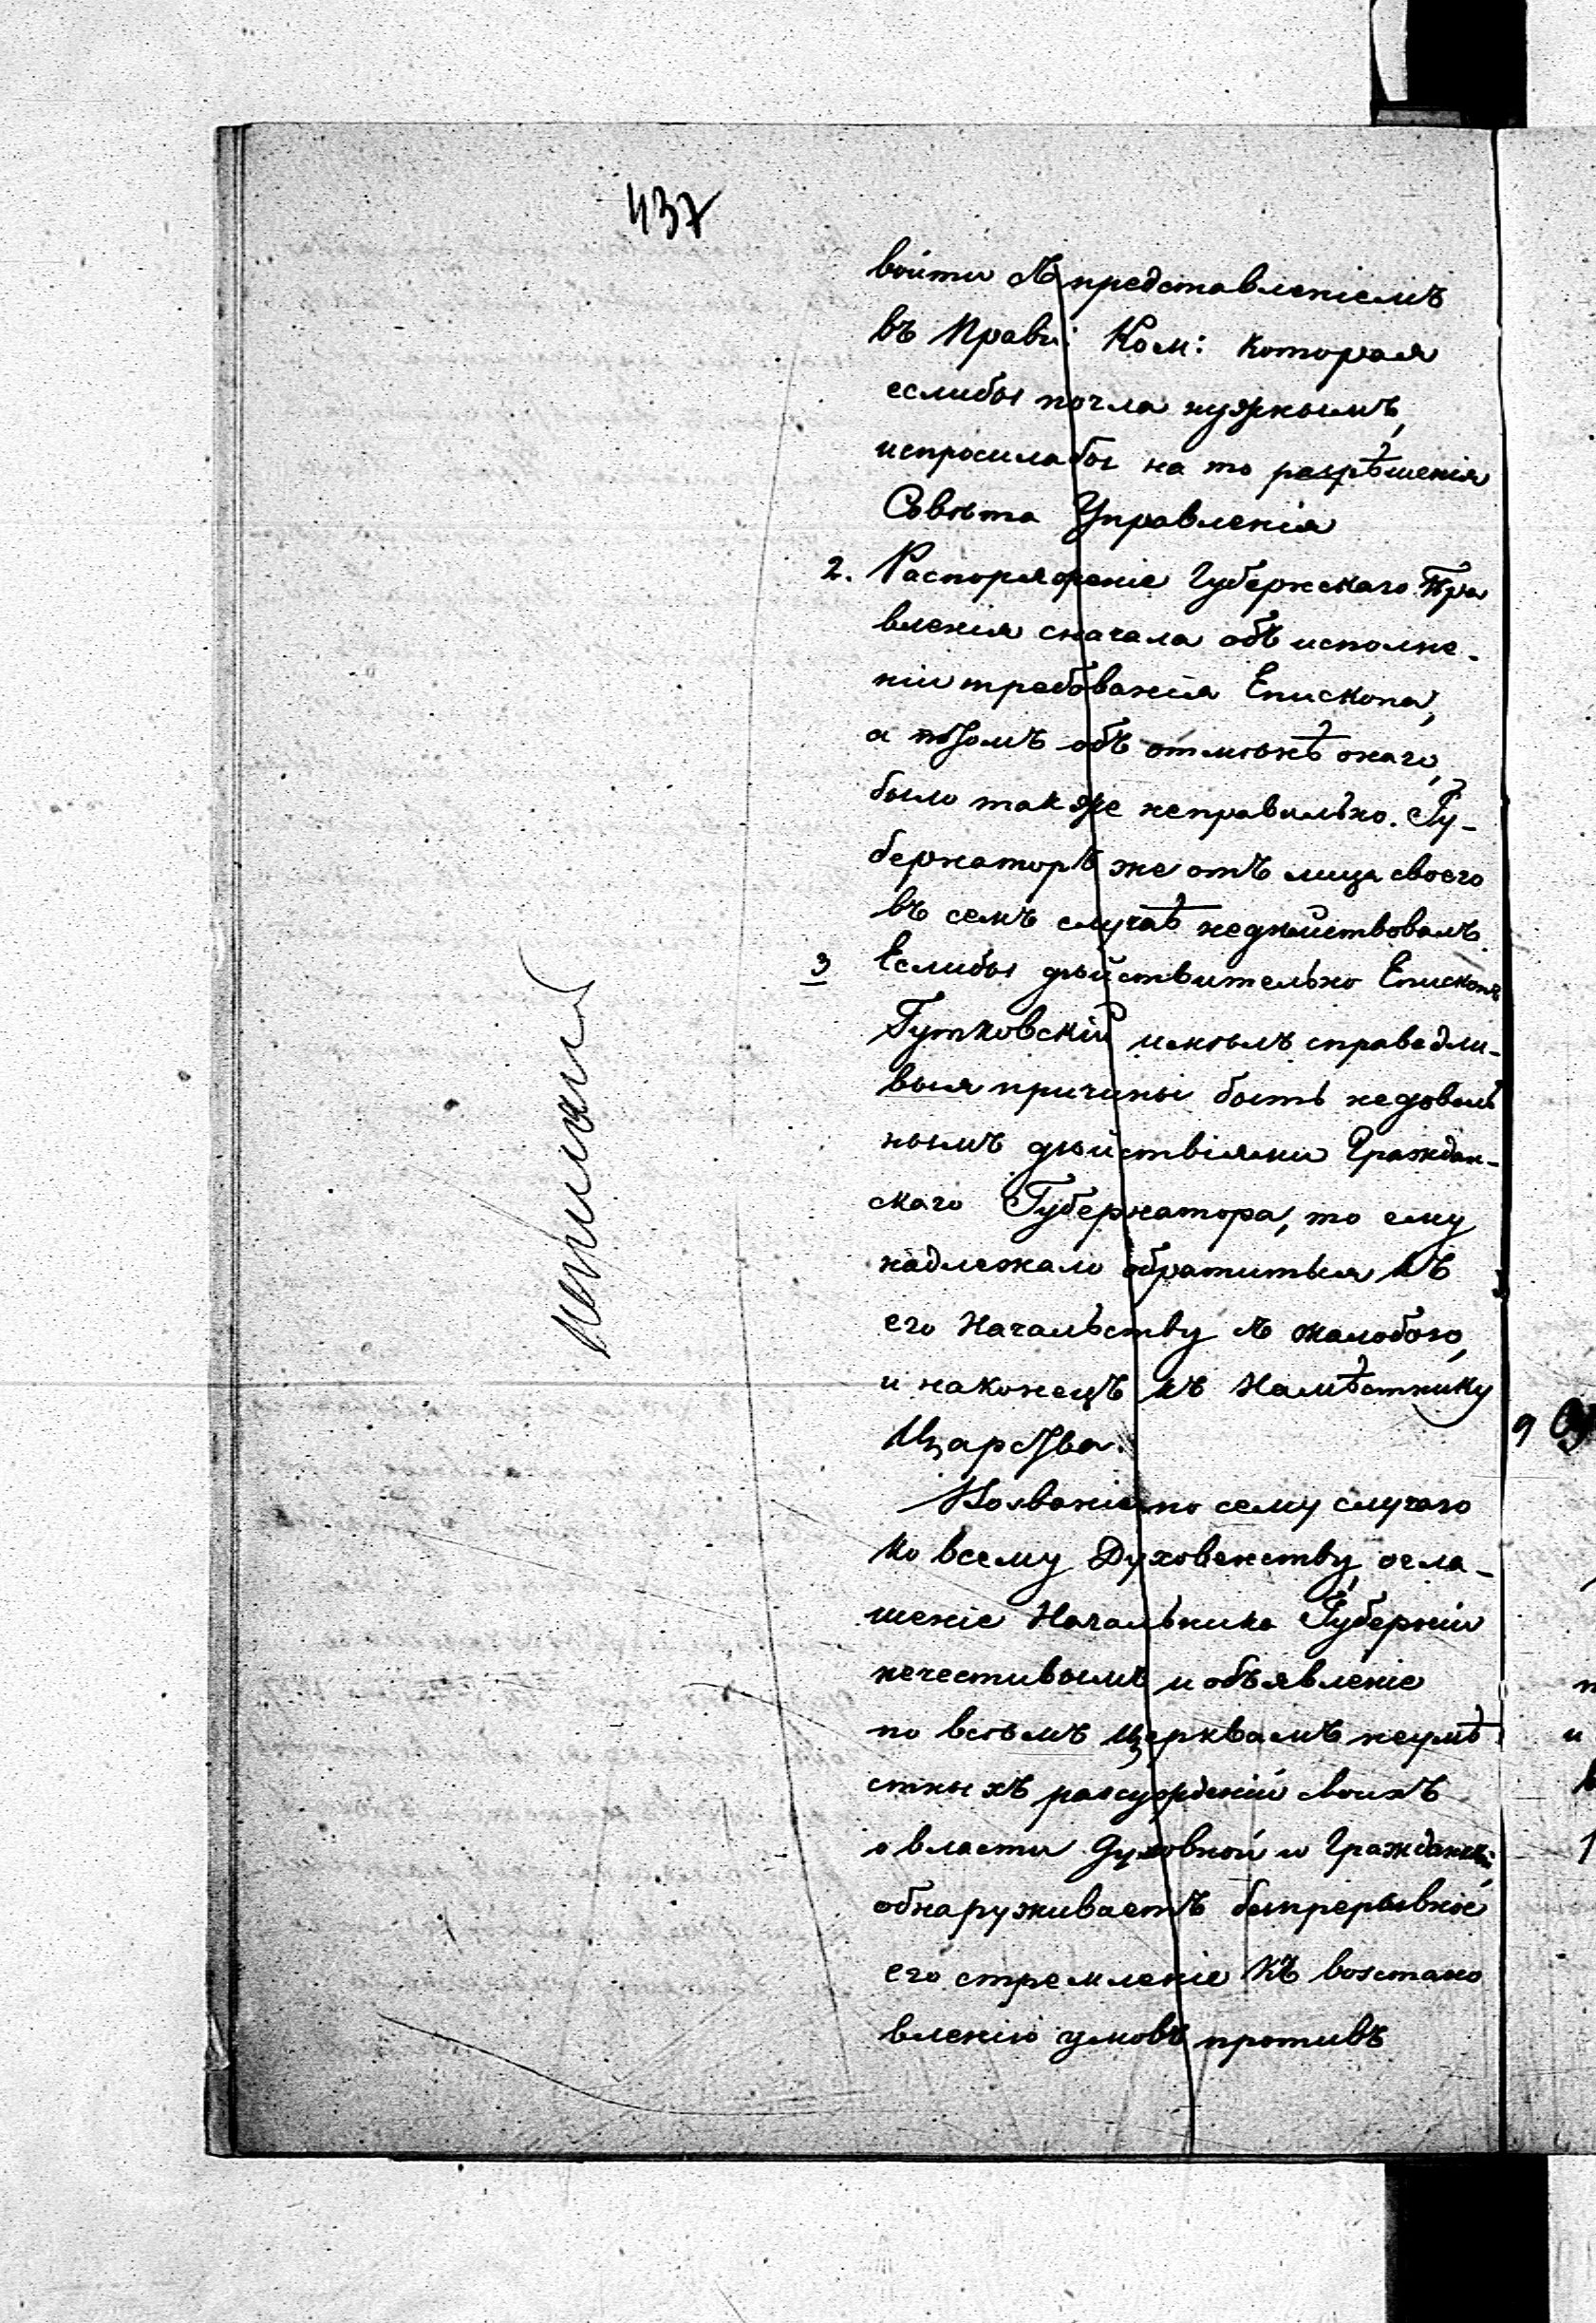 437
войти съ представленіемъ
въ Прав: Ком: которая
еслибы почла нужнымъ,
испросилабы на то разрѣшенія
Совѣта Управленія
2. Распоряженіе Губернскаго Пра
вленія сначала объ исполне-
ніи требованія Епископа,
а потомъ объ отмѣнѣ онаго,
было также неправильно. Гу-
бернаторъ же отъ лица своего
въ семъ случаѣ недѣйствовалъ.
3 Еслибы дѣйствительно Епископъ
Гутковскій имѣлъ справедли-
выя причины быть недоволь
нымъ дѣйствіями Граждан-
скаго Губернатора, то ему
надлежало обратиться къ
его Начальству съ жалобою,
и наконецъ къ Намѣстнику
Царства.
Воззваніе по сему случаю
ко всему Духовенству, огла-
шеніе Начальника Губерніи
нечестивымъ и объявленіе
по всѣмъ церквамъ неумѣ
стныхъ разсужденій своихъ
о власти духовной и Гражданск:
обнаруживаетъ безпрерывное
его стремленіе къ возстано
вленію умовъ противъ